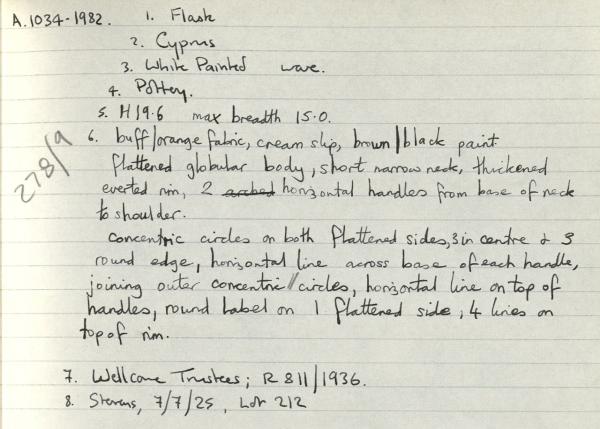 A.1034-1982. 1. Flask
2. Cyprus
3. White Painted ware.
4. Pottery.
5. H 19.6 max breadth 15.0.
6. buff/orange fabric, cream slip, brown/black paint.
flattened globular body, short narrow neck, thickened
everted rim, 2 arched horizontal handles from base of neck
to shoulder.
Concentric circles on both flattened sides, 3 in centre & 3
round edge, horizontal line across base of each handle,
joining outer concentric circles, horizontal line on top of
handles, round label on 1 flattened side, 4 lines on
top of rim.
278/9
7. Wellcome Trustees; R 811/1936.
8. Stevens, 7/7/25, Lot 212